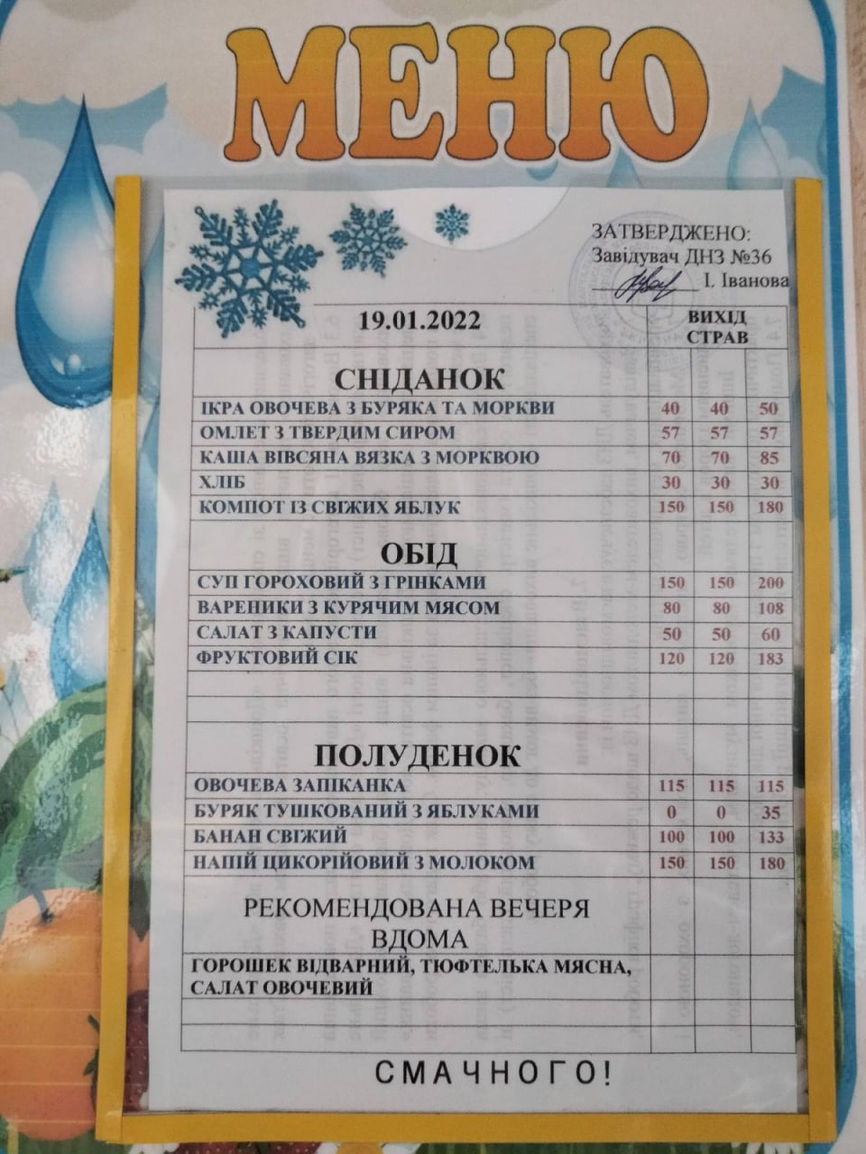 МЕНЮ
ЗАТВЕРДЖЕНО:
Завідувач ДНЗ №36
І. Іванова
19.01.2022 ВИХІД СТРАВ
СНІДАНОК
ІКРА ОВОЧЕВА З БУРЯКА ТА МОРКВИ 40 40 50
ОМЛЕТ З ТВЕРДИМ СИРОМ 57 57 57
КАША ВІВСЯНА ВЯЗКА З МОРКВОЮ 70 70 85
ХЛІБ 30 30 30
КОМПОТ ІЗ СВІЖИХ ЯБЛУК 150 150 180
ОБІД
СУП ГОРОХОВИЙ З ГРІНКАМИ 150 150 200
ВАРЕНИКИ З КУРЯЧИМ МЯСОМ 80 80 108
САЛАТ З КАПУСТИ 50 50 60
ФРУКТОВИЙ СІК 120 120 183
ПОЛУДЕНОК
ОВОЧЕВА ЗАПІКАНКА 115 115 115
БУРЯК ТУШКОВАНИЙ З ЯБЛУКАМИ 0 0 35
БАНАН СВІЖИЙ 100 100 133
НАПІЙ ЦИКОРІЙОВИЙ З МОЛОКОМ 150 150 180
РЕКОМЕНДОВАНА ВЕЧЕРЯ
ВДОМА
ГОРОШЕК ВІДВАРНИЙ, ТЮФТЕЛЬКА МЯСНА,
САЛАТ ОВОЧЕВИЙ
СМАЧНОГО!